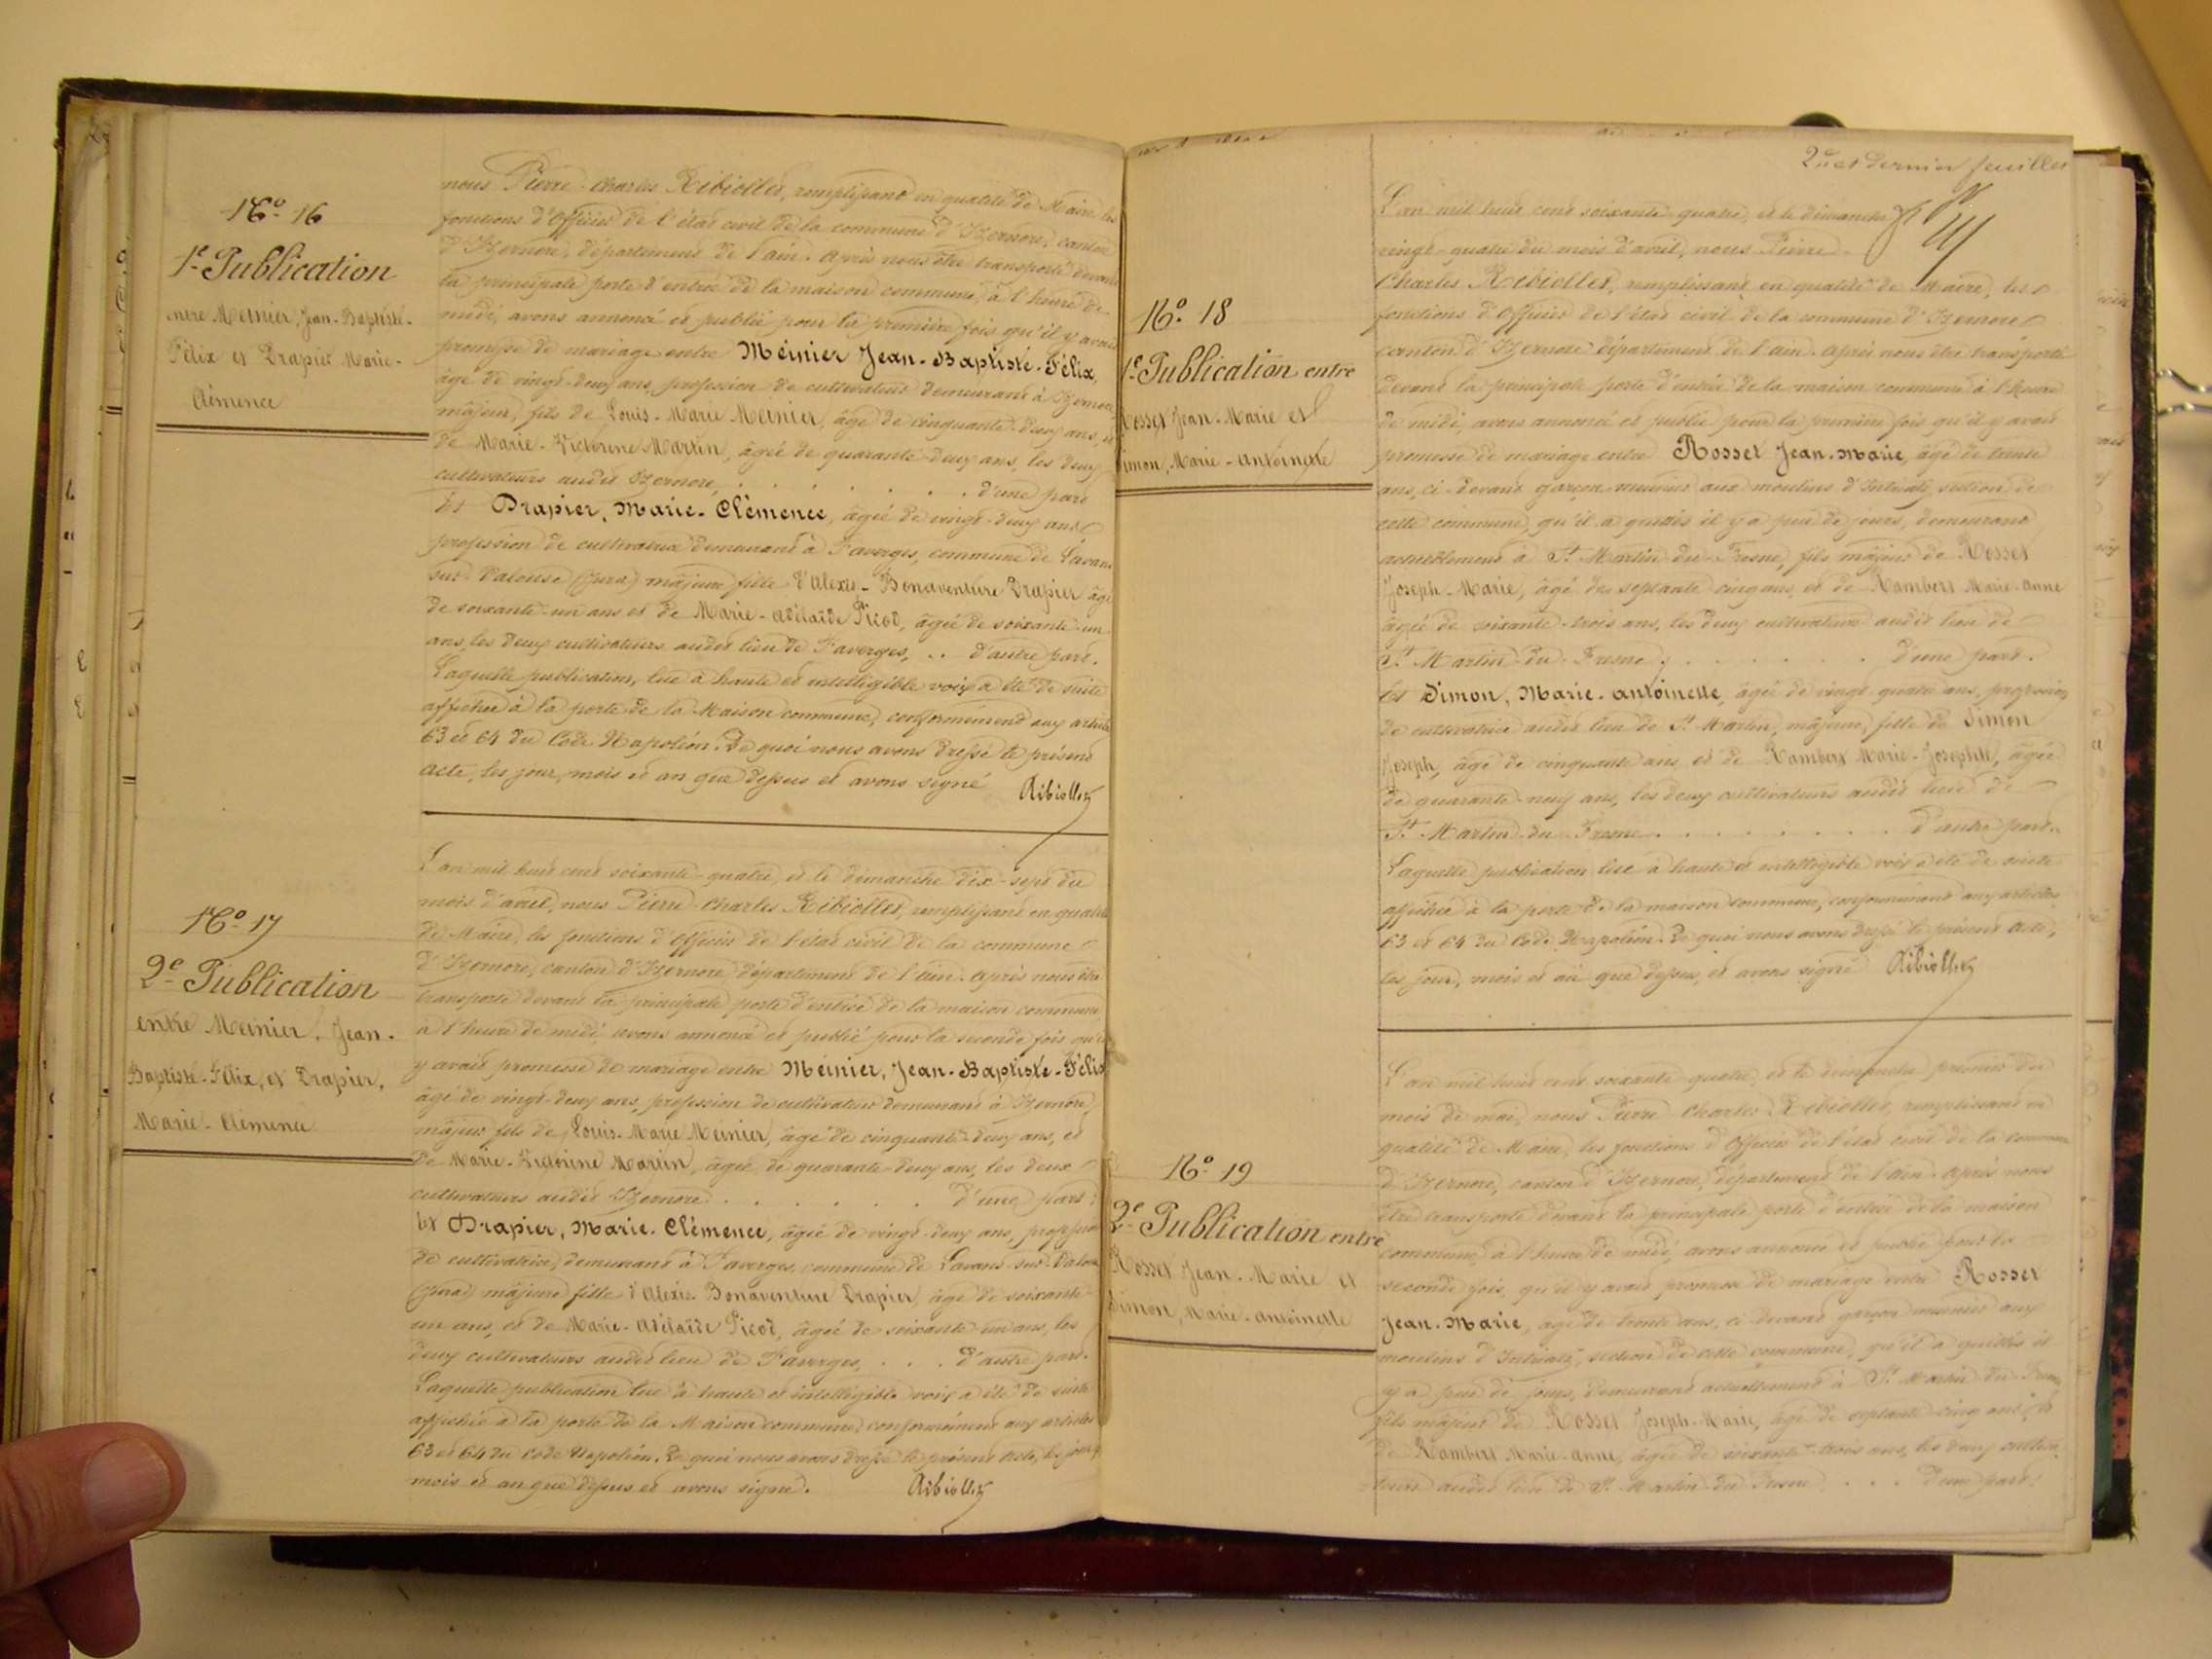 N.º 16
1.e Publication
entre Meinier, Jean-Baptiste-
Félix et Drapier Marie-
Clémence
nous Pierre-Charles Ribiollet, remplissant en qualité de Maire les
fonctions d'Officier de l'état civil de la commune d'Izernore, canton
d'Izernore, département de l'ain. Après nous être transporté devant
la principale porte d'entrée de la maison commune, à l'heure de
midi, avons annoncé et publié pour la première fois qu'il y avait
promesse de mariage entre Meinier Jean-Baptiste-Félix,
âgé de vingt-deux ans, profession de cultivateur demeurant à Izernore,
majeur, fils de Louis-Marie Meinier, âgé de cinquante-deux ans, et
de Marie-Victorine Martin, âgée de quarante-deux ans, les deux
cultivateurs audit Izernore, . . . . . . . d'une part
Et Drapier, Marie-Clémence, âgée de vingt-deux ans
profession de cultivatrice demeurant à Faverges, commune de Lavans
sur-Valouse (Jura) majeure fille d'Alexis-Bonaventure Drapier âgé
de soixante-un ans et de Marie-adélaïde Picod, âgée de soixante-un
ans, les deux cultivateurs audit lieu de Faverges, .. d'autre part.
Laquelle publication, lue à haute et intelligible voix a été de suite
affichée à la porte de la Maison commune, conformément aux articles
63 et 64 du Code Napoléon. De quoi nous avons dressé le présent
acte, les jour, mois et an que dessus et avons signé Ribiollet
N.º 17
2.e Publication
entre Meinier, Jean-
Baptiste-Félix, et Drapier,
Marie-Clémence
L'an mil huit cent soixante-quatre, et le dimanche dix-sept du
mois d'avril, nous Pierre-Charles Ribiollet, remplissant en qualité
de Maire, les fonctions d'Officier de l'état civil de la commune
d'Izernore, canton d'Izernore département de l'ain. Après nous être
transporté devant la principale porte d'entrée de la maison commune
à l'heure de midi, avons annoncé et publié pour la seconde fois qu'il
y avait promesse de mariage entre Meinier, Jean-Baptiste-Félix
âgé de vingt-deux ans, profession de cultivateur demeurant à Izernore,
majeur fils de Louis-Marie Meinier, âgé de cinquante-deux ans, et
de Marie-Victorine Martin, âgée de quarante-deux ans, les deux
cultivateurs audit Izernore . . . . . . d'une part:
Et Drapier, Marie-Clémence, âgée de vingt-deux ans, profession
de cultivatrice, demeurant à Faverges, commune de Lavans-sur-Valouse
(Jura) majeure fille d'Alexis-Bonaventure Drapier, âgé de soixante-
un ans, et de Marie-Adélaïde Picod, âgée de soixante-un ans, les
deux cultivateurs audit lieu de Faverges, . . . d'autre part.
Laquelle publication lue à haute et intelligible voix a été de suite
affichée à la porte de la Maison commune, conformément aux articles
63 et 64 du Code Napoléon. De quoi nous avons dressé le présent acte, les jour,
mois et an que dessus et avons signé. Ribiollet
2.e et dernier feuillet
N.º 18
1.e Publication entre
Rosset Jean-Marie et
Simon, Marie-Antoinette
L'an mil huit cent soixante-quatre, et le dimanche
vingt-quatre du mois d'avril, nous Pierre-
Charles Ribiollet, remplissant en qualité de Maire, les
fonctions d'Officier de l'état civil de la commune d'Izernore
canton d'Izernore département de l'ain. Après nous être transporté
devant la principale porte d'entrée de la maison commune à l'heure
de midi, avons annoncé et publié pour la première fois qu'il y avait
promesse de mariage entre Rosset Jean-Marie, âgé de trente
ans, ci-devant garçon meunier aux moulins d'Intriat, section de
cette commune, qu'il a quittés il y a peu de jours, demeurant
actuellement à St Martin-du-Fresne, fils majeur de Rosset
Joseph-Marie, âgé de septante cinq ans, et de Rambert Marie-Anne
âgée de soixante-trois ans, les deux cultivateurs audit lieu de
St Martin-du-Fresne, . . . . . . . d'une part.
Et Simon, Marie-Antoinette, âgée de vingt-quatre ans, profession
de cultivatrice audit lieu de St Martin, majeure, fille de Simon
Joseph, âgé de cinquante ans et de Rambert Marie-Josephte, âgée
de quarante-neuf ans, les deux cultivateurs audit lieu de
St Martin-du-Fresne . . . . . . . . d'autre part.
Laquelle publication lue à haute et intelligible voix a été de suite
affichée à la porte de la maison commune, conformément aux articles
63 et 64 du Code Napoléon. De quoi nous avons dressé le présent acte,
les jour, mois et an que dessus, et avons signé Ribiollet
N.º 19
2.e Publication entre
Rosset Jean-Marie et
Simon, Marie-Antoinette
L'an mil huit cent soixante-quatre, et le dimanche premier du
mois de mai, nous Pierre Charles Ribiollet, remplissant en
qualité de Maire, les fonctions d'Officier de l'état civil de la commune
d'Izernore, canton d'Izernore, département de l'ain. Après nous
être transporté devant la principale porte d'entrée de la maison
commune, à l'heure de midi, avons annoncé et publié pour la
seconde fois, qu'il y avait promesse de mariage entre Rosset
Jean-Marie, âgé de trente ans, ci-devant garçon meunier aux
moulins d'Intriat, section de cette commune, qu'il a quittés il
y a peu de jours, demeurant actuellement à St Martin du Fresne
fils majeur de Rosset Joseph-Marie, âgé de septante-cinq ans, et
de Rambert Marie-Anne, âgée de soixante-trois ans, les deux cultiva-
teurs audit lieu de St Martin-du-Fresne . . . d'une part: